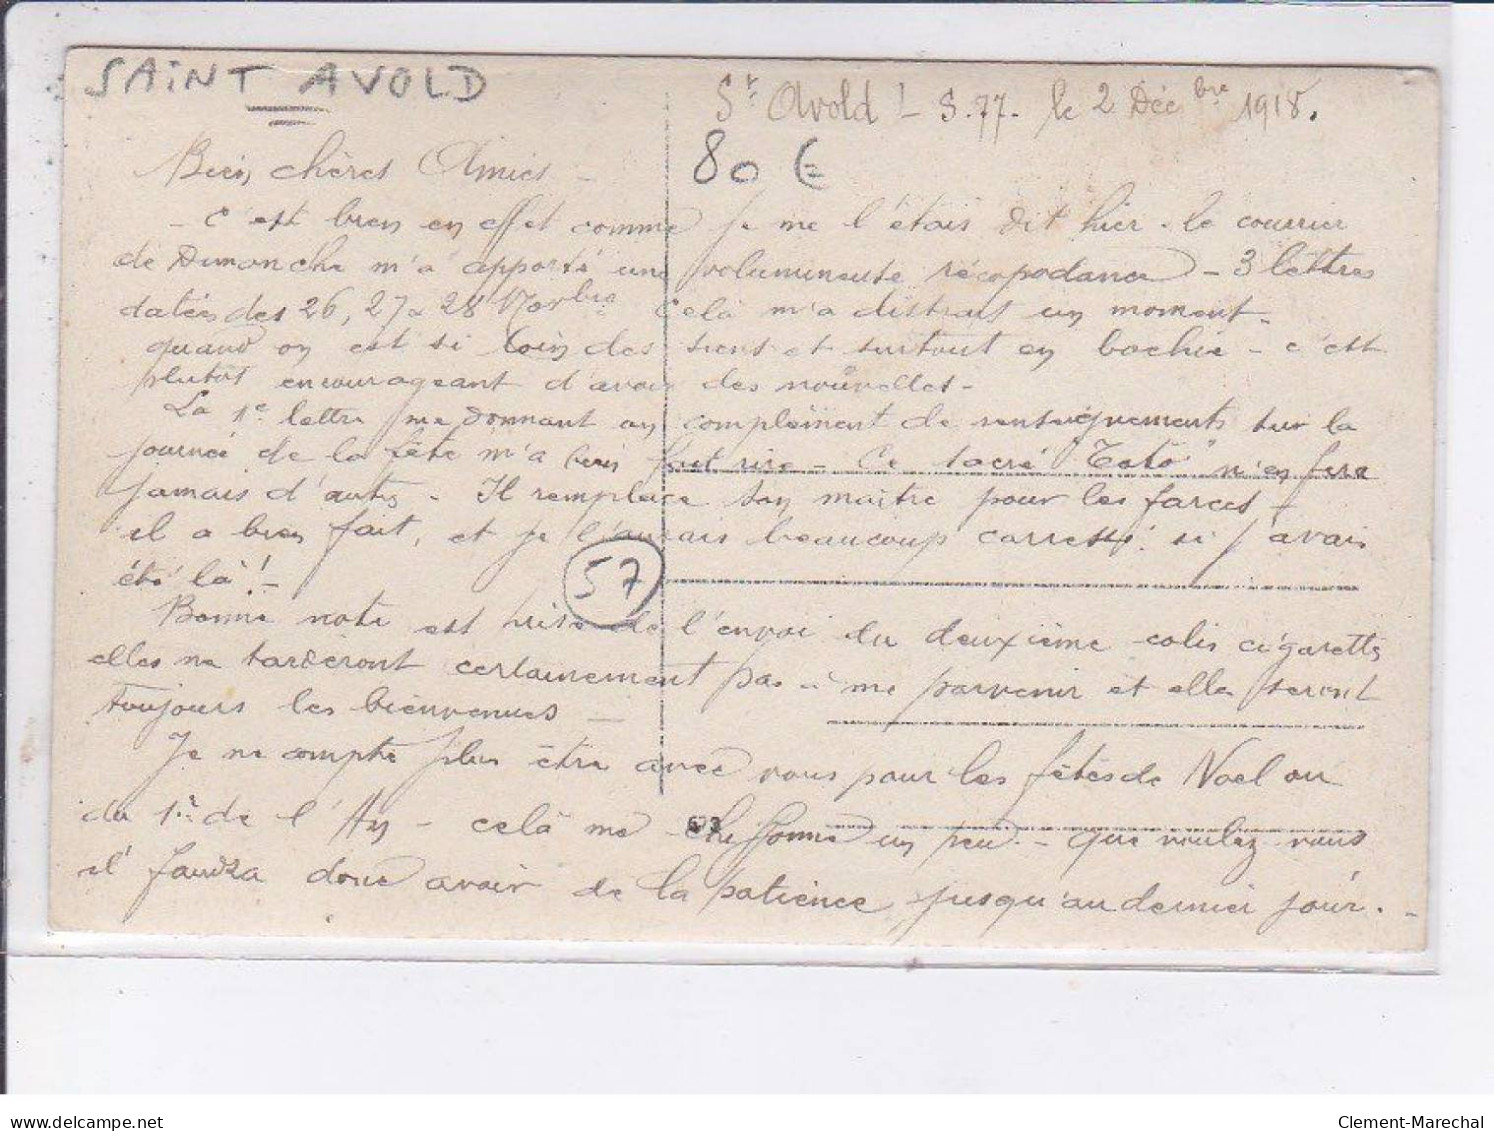 SAINT AVOLD
St Avold - S.77. le 2 Décbre 1918.
80 €
Bien chères Amies -
- C'est bien en effet comme je me l'étais dit hier. le courrier
de Dimanche m'a apporté une volumineuse - 3 lettres
datées des 26, 27 & 28 Novbre Cela m'a distrait un moment -
quand on est si loin des siens et surtout en bochie - c'est
plutôt encourageant d'avoir des nouvelles -
La 1e lettre me donnant un complément de renseignements sur la
journée de la fête m'a bien fait rire - Ce sacré "Toto" n'en fera
jamais d'autres - Il remplace son maître pour les farces -
il a bien fait, et je l'aurais beaucoup caressé si j'avais
été là! -
57
Bonne note est prise de l'envoi du deuxième colis cigarettes
elles ne tarderont certainement pas à me parvenir et elles seront
toujours les bienvenues -
Je ne compte plus être avec vous pour les fêtes de Noel ou
du 1er de l'An - celà me chiffonne un peu - que voulez vous
il faudra donc avoir de la patience jusqu'au dernier jour. -
Clement-Marechal
delcampe.net